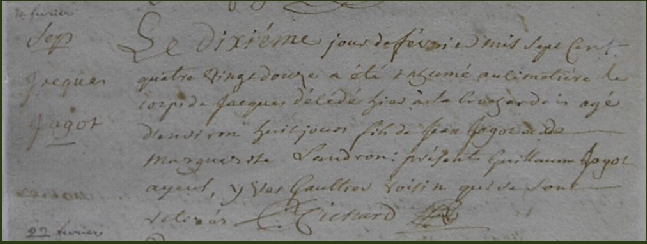 10 fevrier
Sep
Jacques
Jagot
Le dixiéme jour de février mil sept Cent
quatre vingt douze a été inhumé au cimetiere le
corps de Jacques décédé hier à la agé
d'environ huit jours fils de Jean Jagot et de
Marguerite Landron: présents Guillaume Jagot
ayeul, yves Gaultier voisin qui se sont
retirés Richard
22 fevrier